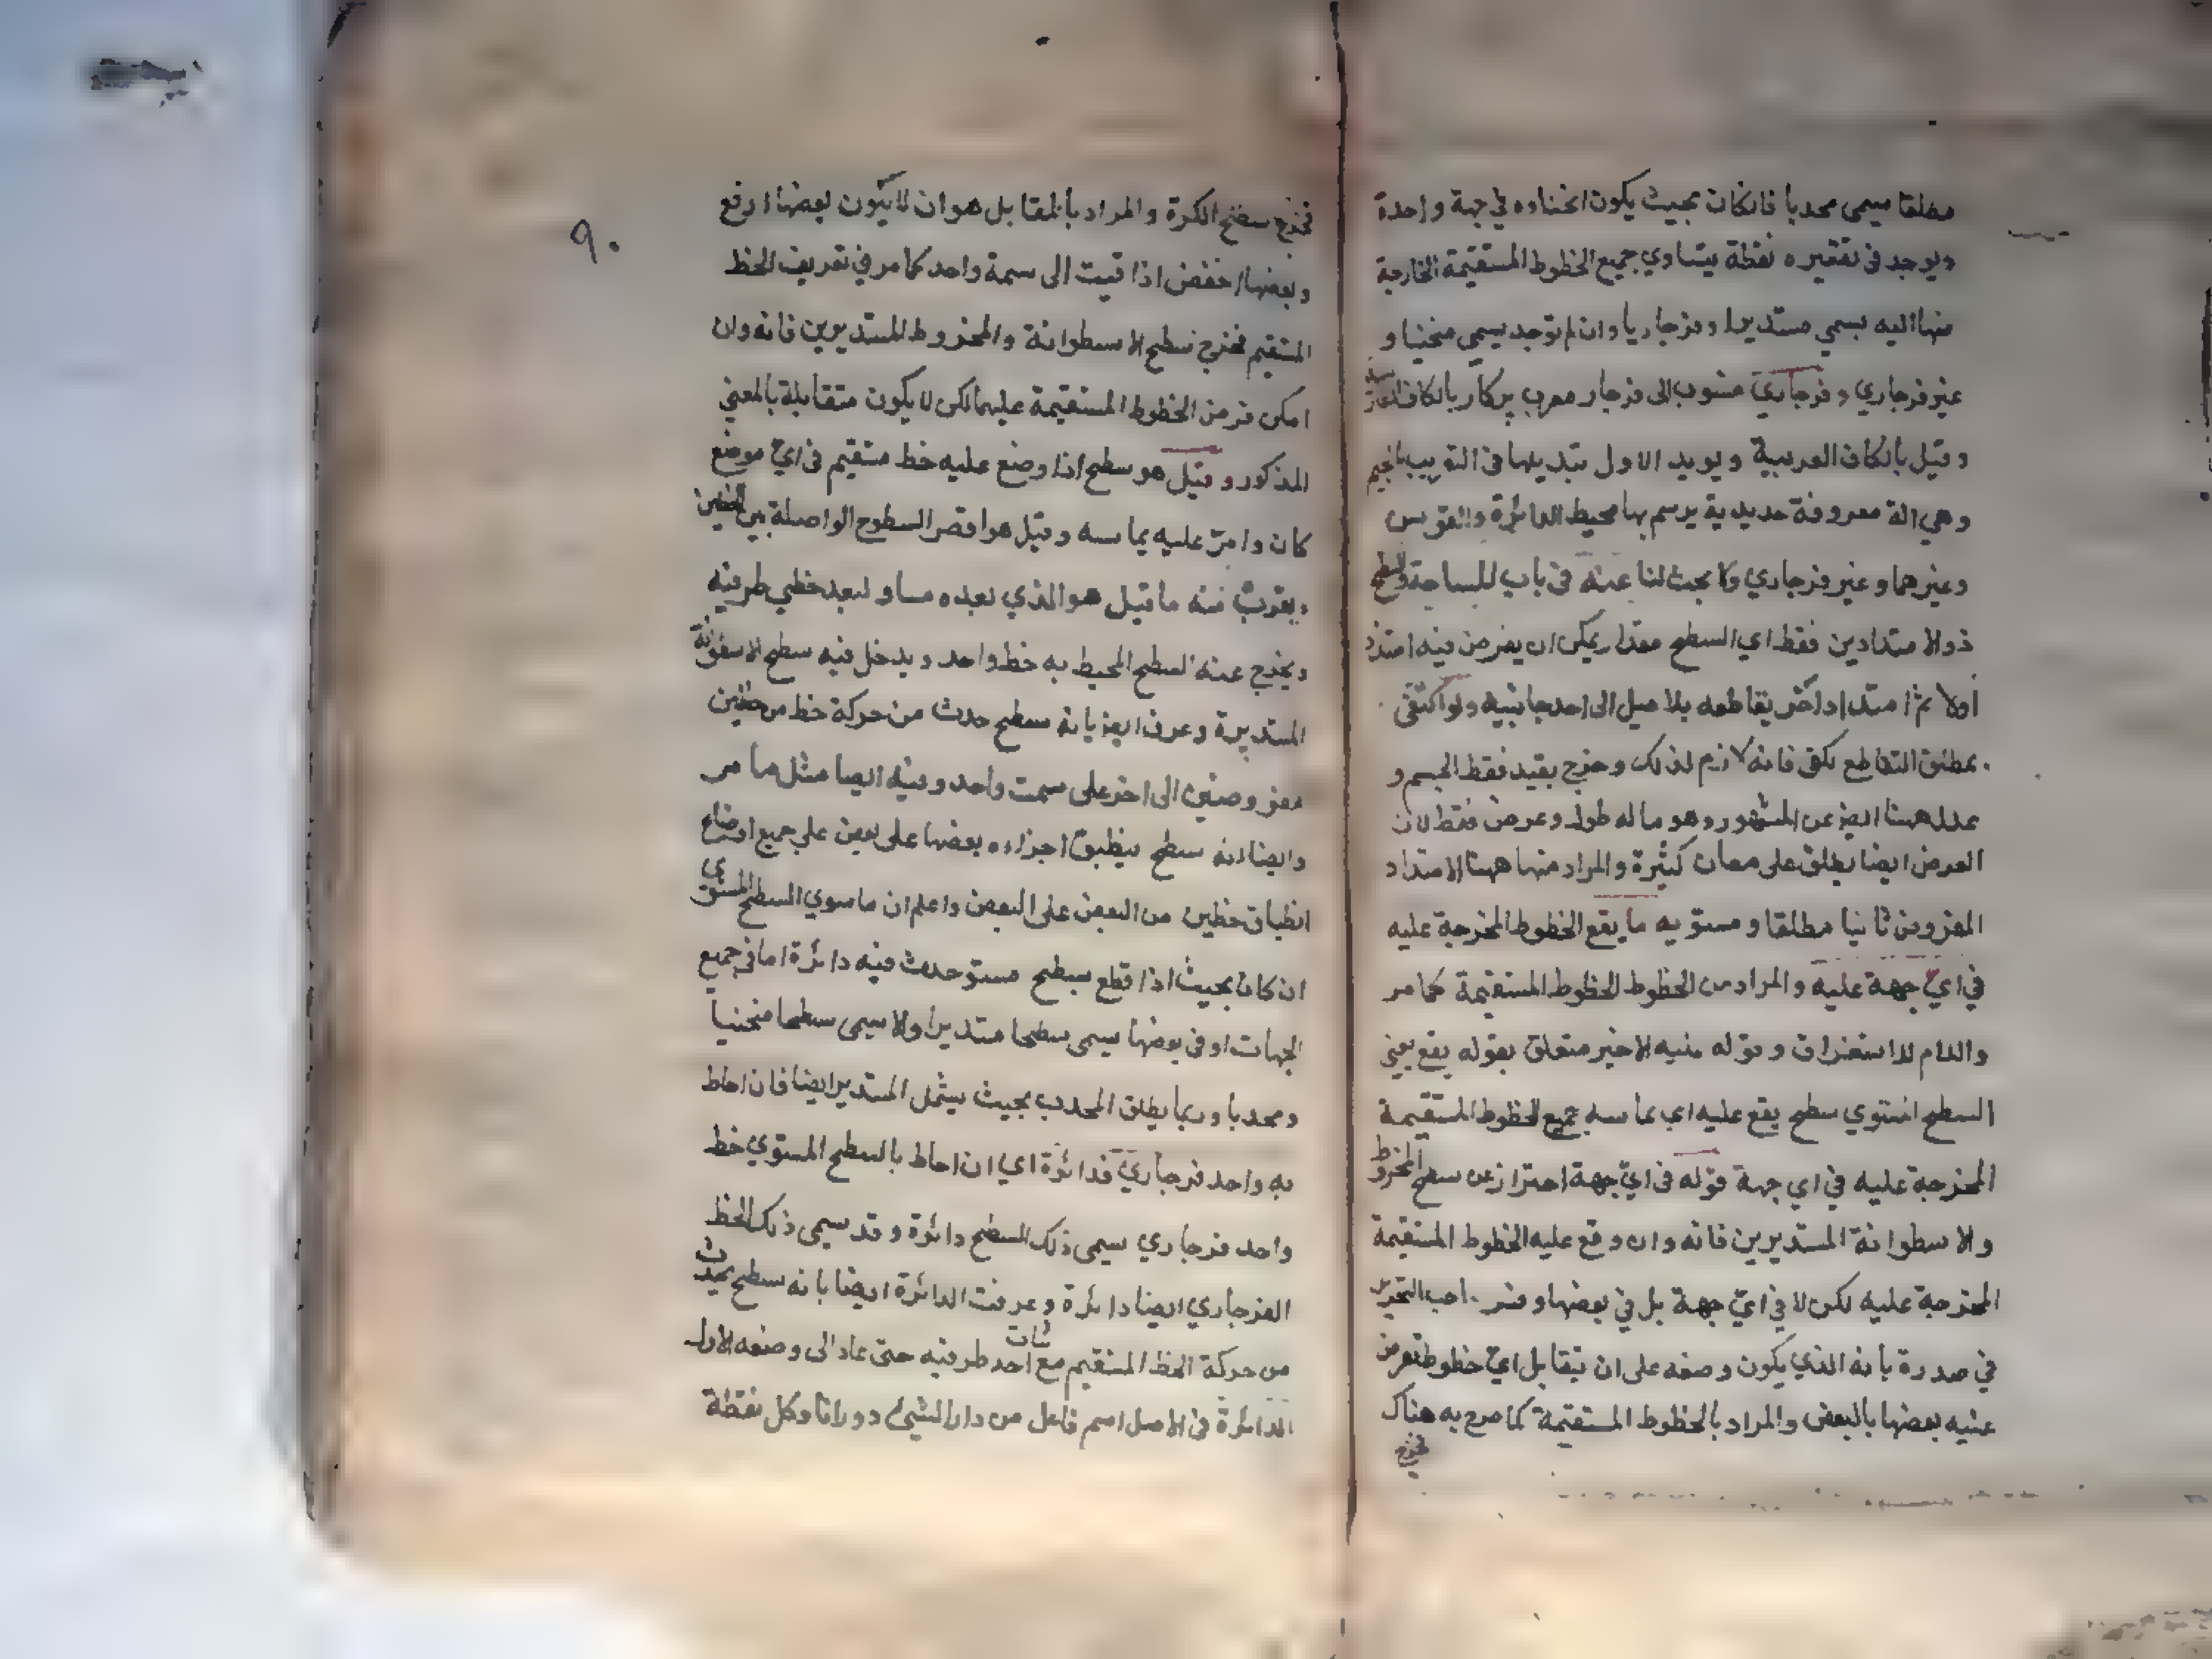 مطلقا يسمى محدبا فانكان بحيث يكون انحناءه في جهة واحدة
ويوجد في تقعيره نقطة يتساوي جميع الخطوط المستقيمة الخارجة
منها اليه يسمي مستديرا وفرجاريا وان لم توجد يسمي منحنيا و
غير فرجاري وفرجاري منسوب الى فرجار معرب پركار بالكاف الفارسية
وقيل بالكاف العربية ويويد الاول تبديلها في التعريب بالجيم
وهي الة معروفة حديدية يرسم بها محيط الدائرة والقوس
وغيرهما وغير فرجاري ولا بحث لنا عنه في باب المساحة والسطح
ذو الامتدادين فقط اي السطح مقدار يمكن ان يفرض فيه امتداد
اولا ثم امتداد اخر يقاطعه بلا ميل الى احد جانبيه ولو اكتفى
بمطلق التقاطع لكفى فانه لازم لذلك وخرج بقيد فقط الجسم و
عدل ههنا ايض عن المشهور وهو ما له طول وعرض فقط لان
العرض ايضا يطلق على معان كثيرة والمراد منها ههنا الامتداد
المفروض ثانيا مطلقا ومستويه ما يقع الخطوط المخرجة عليه
في اي جهة عليه والمراد من الخطوط الخطوط المستقيمة كما مر
واللام للاستغراق وقوله عليه الاخير متعلق بقوله يقع يعني
السطح المستوي سطح يقع عليه اي يماسه جميع الخطوط المستقيمة
المخرجة عليه في اي جهة قوله في اي جهة احتراز عن سطح المخروط
والاسطوانة المستديرين فانه وان وقع عليه الخطوط المستقيمة
المخرجة عليه لكن لا في اي جهة بل في بعضها وفسر صاحب التحرير
في صدره بانه الذي يكون وضعه على ان يتقابل اي خطوط تفرض
عليه بعضها بالبعض والمراد بالخطوط المستقيمة كما صرح به هناك
فخرج
٩٠
فخرج سطح الكرة والمراد بالتقابل هو ان لا يكون بعضها ارفع
وبعضها اخفض اذا قيست الى سمة واحد كما مر في تعريف الخط
المستقيم فخرج سطح الاسطوانة والمخروط المستديرين فانه وان
امكن فرض الخطوط المستقيمة عليهما لكن لا يكون متقابلة بالمعني
المذكور وقيل هو سطح اذا وضع عليه خط مستقيم في اي موضع
كان وامر عليه يماسه وقيل هو اقصر السطوح الواصلة بين الخطين
ويقرب منه ما قيل هو الذي بعده مساو لبعد خطي طرفيه
ويخرج عنه السطح المحيط به خط واحد ويدخل فيه سطح الاسطوانة
المستديرة وعرف ايض بانه سطح حدث من حركة خط من خطين
مفروضين الى اخر على سمت واحد وفيه ايضا مثل ما مر
وايضا انه سطح ينطبق اجزاءه بعضها على بعض علي جميع اوضاع
انطباق خطين من البعض على البعض واعلم ان ما سوي السطح المستوي
ان كان بحيث اذا قطع بسطح مستو حدث فيه دائرة اما في جميع
الجهات او في بعضها يسمى سطحا مستديرا والا سمى سطحا منحنيا
ومحدبا وربما يطلق المحدب بحيث يشمل المستدير ايضا فان احاط
به واحد فرجاري فدائرة اي ان احاط بالسطح المستوي خط
واحد فرجاري سمى ذلك السطح دائرة وقد سمى ذلك الخط
الفرجاري ايضا دائرة وعرفت الدائرة ايضا بانه سطح يحدث
من حركة الخط المستقيم مع ثبات احد طرفيه حتى عاد الى وضعه الاول
الدائرة في الاصل اسم فاعل من دار الشيء دورانا وكل نقطة